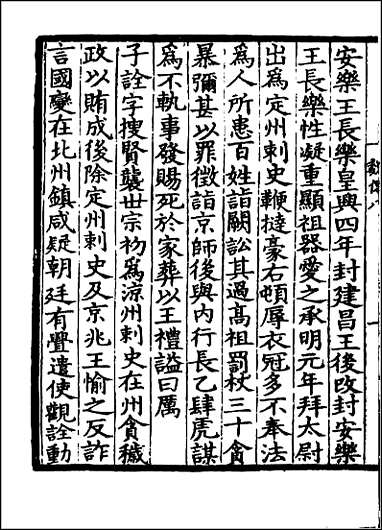 安樂王長樂皇興四年封建昌王後改封安樂
王長樂性凝重顯祖器愛之承明元年拜太尉
出爲定州刺史鞭撻豪右頓辱衣冠多不奉法
爲人所患百姓詣闕訟其過高祖罰杖三十貪
暴彌甚以罪徵詣京師後與内行長乙肆虎謀
爲不軌事發賜死於家葬以王禮謚曰厲
子詮字搜賢襲世宗初爲涼州刺史在州貪穢
政以賄成後除定州刺史及京兆王愉之反詐
言國變在北州鎮咸疑朝廷有舋遣使觀詮動